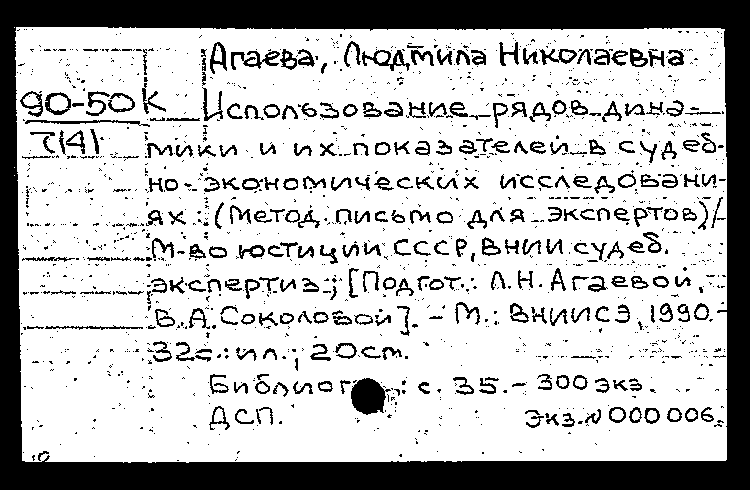 Агаева, Людмила Николаевна
90-50 К
7(4)
Использование рядов дина-
мики и их показателей в судеб-
но-экономических исследовани-
ях : (Метод. письмо для экспертов)/
М-во юстиции СССР, ВНИИ судеб.
экспертиз ; [Подгот.: Л.Н. Агаевой,
В.А. Соколовой]. - М.: ВНИИСЭ, 1990.-
32с.: ил.; 20см.
: с. 35. - 300 экз.
ДСП. Экз. N 000 006.